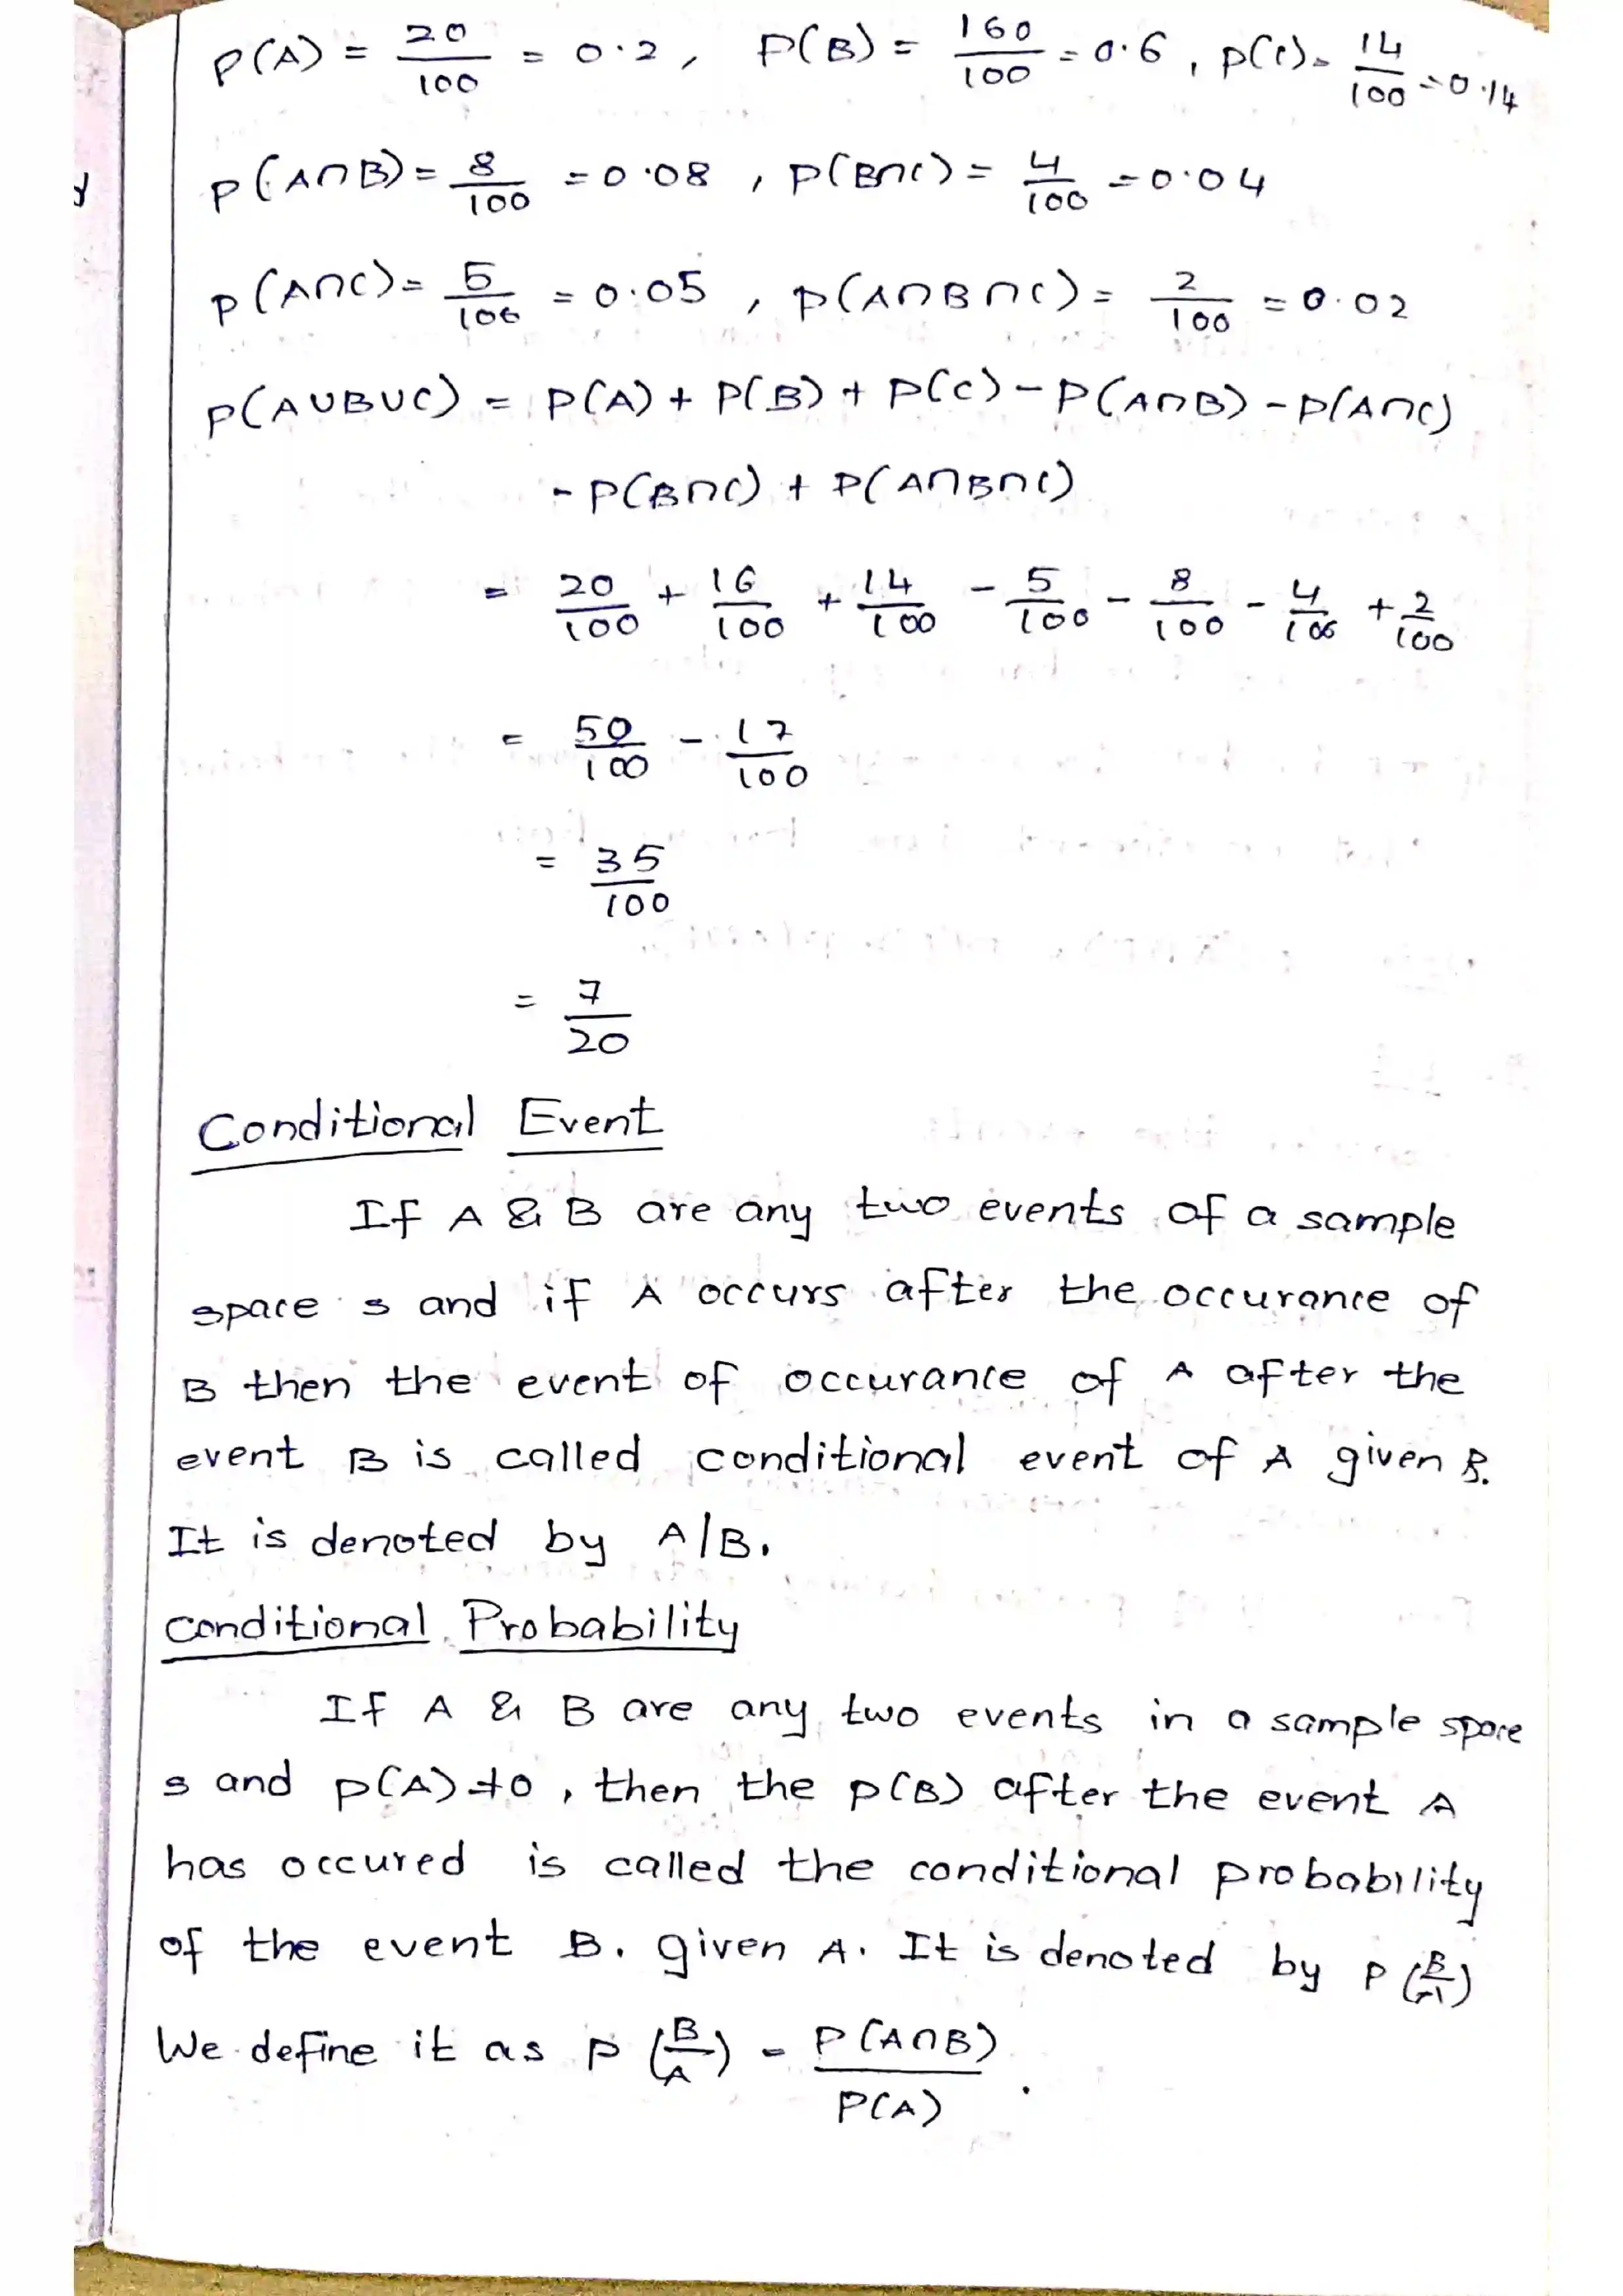 P(A) = 20/100 = 0.2, P(B) = 160/100 = 0.6, P(C) = 14/100 = 0.14
P(A∩B) = 8/100 = 0.08, P(B∩C) = 4/100 = 0.04
P(A∩C) = 5/100 = 0.05, P(A∩B∩C) = 2/100 = 0.02
P(A∪B∪C) = P(A) + P(B) + P(C) - P(A∩B) - P(A∩C)
- P(B∩C) + P(A∩B∩C)
= 20/100 + 16/100 + 14/100 - 5/100 - 8/100 - 4/100 + 2/100
= 50/100 - 17/100
= 35/100
= 7/20
Conditional Event
If A & B are any two events of a sample
space s and if A occurs after the occurance of
B then the event of occurance of A after the
event B is called conditional event of A given B.
It is denoted by A|B.
Conditional Probability
If A & B are any two events in a sample space
s and P(A)≠0, then the P(B) after the event A
has occured is called the conditional probability
of the event B. given A. It is denoted by P(B/A)
We define it as P(B/A) = P(A∩B)/P(A).